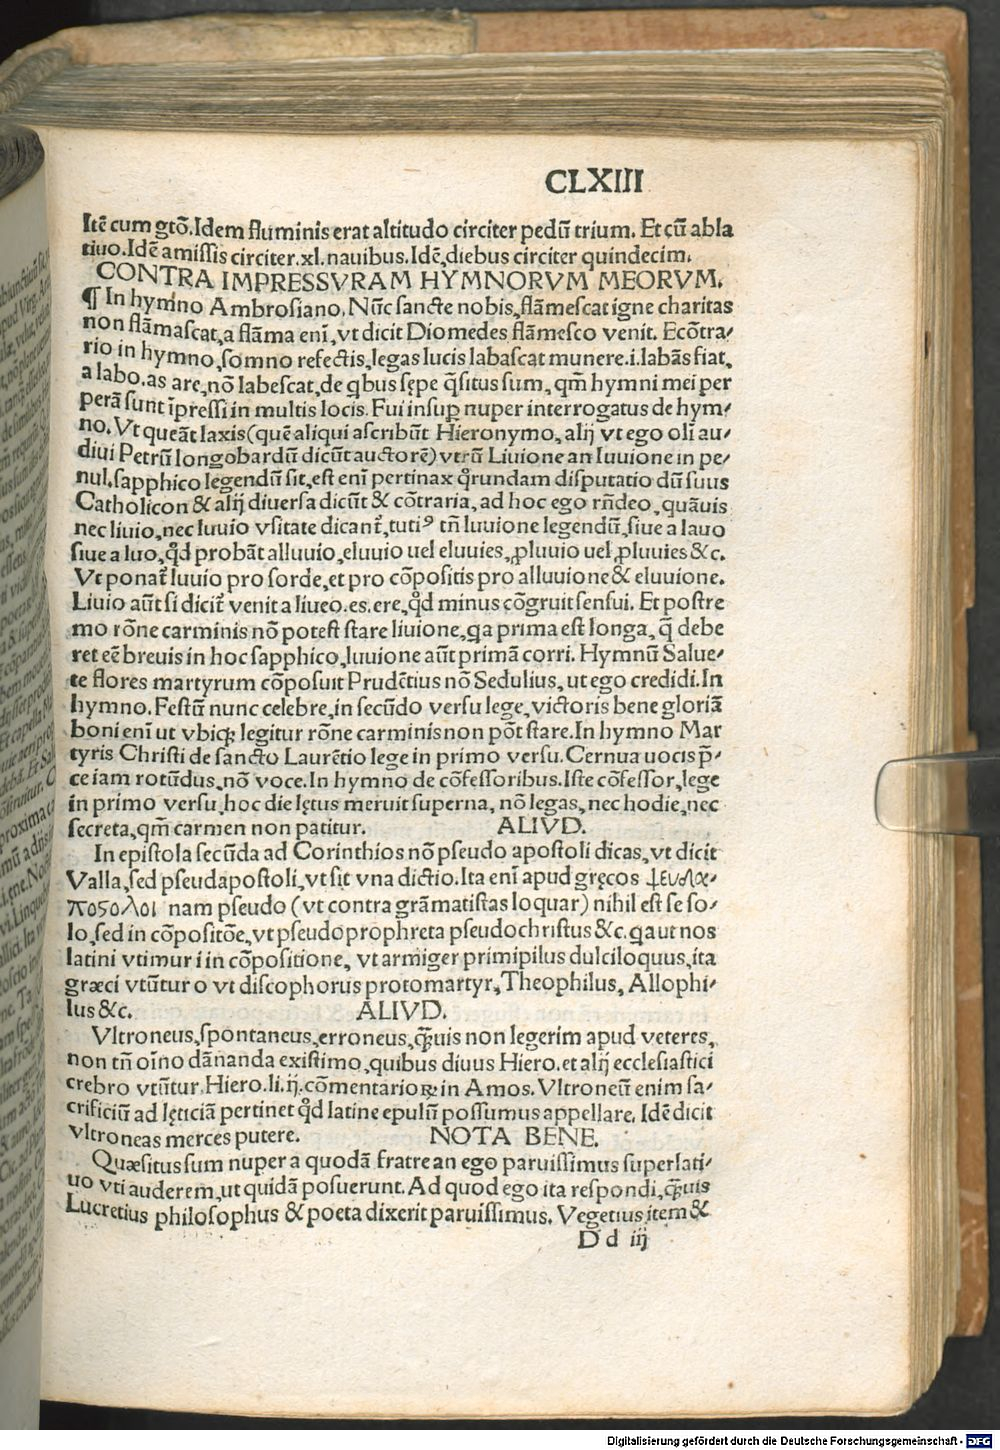 CLXIII
Itē cum gtō. Idem fluminis erat altitudo circiter pedū trium. Et cū abla
tiuo. Idē amissis circiter. xl. nauibus. Idē, diebus circiter quindecim.
CONTRA IMPRESSVRAM HYMNORVM MEORVM.
¶ In hymno Ambrosiano. Nūc sancte nobis, flāmescat igne charitas
non flāmascat, a flāma enī, vt dicit Diomedes flāmesco venit. Ecōtra/
rio in hymno, somno refectis, legas lucis labascat munere .i. labās fiat,
a labo. as are, nō labescat, de qbus sępe q̄situs sum, qm̄ hymni mei per
perā sunt īpressi in multis locis. Fui insuꝑ nuper interrogatus de hym/
no. Vt queāt laxis (quē aliqui ascribūt Hieronymo, alij vt ego olī au/
diui Petrū longobardū dicūt auctorē) vtrū Liuione an luuione in pe/
nul. sapphico legendū sit, est enī pertinax qrundam disputatio dū suus
Catholicon & alij diuersa dicūt & cōtraria, ad hoc ego rn̄deo, quāuis
nec liuio, nec luuio vsitate dicant᷑, tutiꝰ tn̄ luuione legendū, siue a lauo
siue a luo, qd̓ probāt alluuio, eluuio uel eluuies, ꝓluuio uel ꝓluuies &c.
Vt ponat᷑ luuio pro sorde, et pro cōpositis pro alluuione & eluuione.
Liuio aūt si dicit᷑ venit a liueo. es. ere, qd̓ minus cōgruit sensui. Et postre
mo rōne carminis nō potest stare liuione, qa prima est longa, q̄ debe
ret eē breuis in hoc sapphico, luuione aūt primā corri. Hymnū Salue/
te flores martyrum cōposuit Prudētius nō Sedulius, ut ego credidi. In
hymno. Festū nunc celebre, in secūdo versu lege, victoris bene gloriā
boni enī ut vbiqꝫ legitur rōne carminis non pōt stare. In hymno Mar
tyris Christi de sancto Laurētio lege in primo versu. Cernua uocis p̄/
ce iam rotūdus, nō voce. In hymno de cōfessoribus. Iste cōfessor, lege
in primo versu, hoc die lętus meruit superna, nō legas, nec hodie, nec
secreta, qm̄ carmen non patitur. ALIVD.
In epistola secūda ad Corinthios nō pseudo apostoli dicas, vt dicit
Valla, sed pseudapostoli, vt sit vna dictio. Ita enī apud gręcos ψευδα/
ποςολοι nam pseudo (vt contra grāmatistas loquar) nihil est se so/
lo, sed in cōpositōe, vt pseudoprophreta pseudochristus &c. qa ut nos
latini vtimur i in cōpositione, vt armiger primipilus dulciloquus, ita
græci vtūtur o vt discophorus protomartyr, Theophilus, Allophi/
lus &c. ALIVD.
Vltroneus, spontaneus, erroneus, qꝫuis non legerim apud veteres,
non tn̄ oīno dānanda existimo, quibus diuus Hiero. et alij ecclesiastici
crebro vtūtur. Hiero. li. ij. cōmentarioꝝ in Amos. Vltroneū enim sa/
crificiū ad lęticiā pertinet qd̓ latine epulū possumus appellare. Idē dicit
vltroneas merces putere. NOTA BENE.
Quæsitus sum nuper a quodā fratre an ego paruissimus superlati/
uo vti auderem, ut quidā posuerunt. Ad quod ego ita respondi, qꝫuis
Lucretius philosophus & poeta dixerit paruissimus. Vegetius item &
D d iij
Digitalisierung gefördert durch die Deutsche Forschungsgemeinschaft - DFG